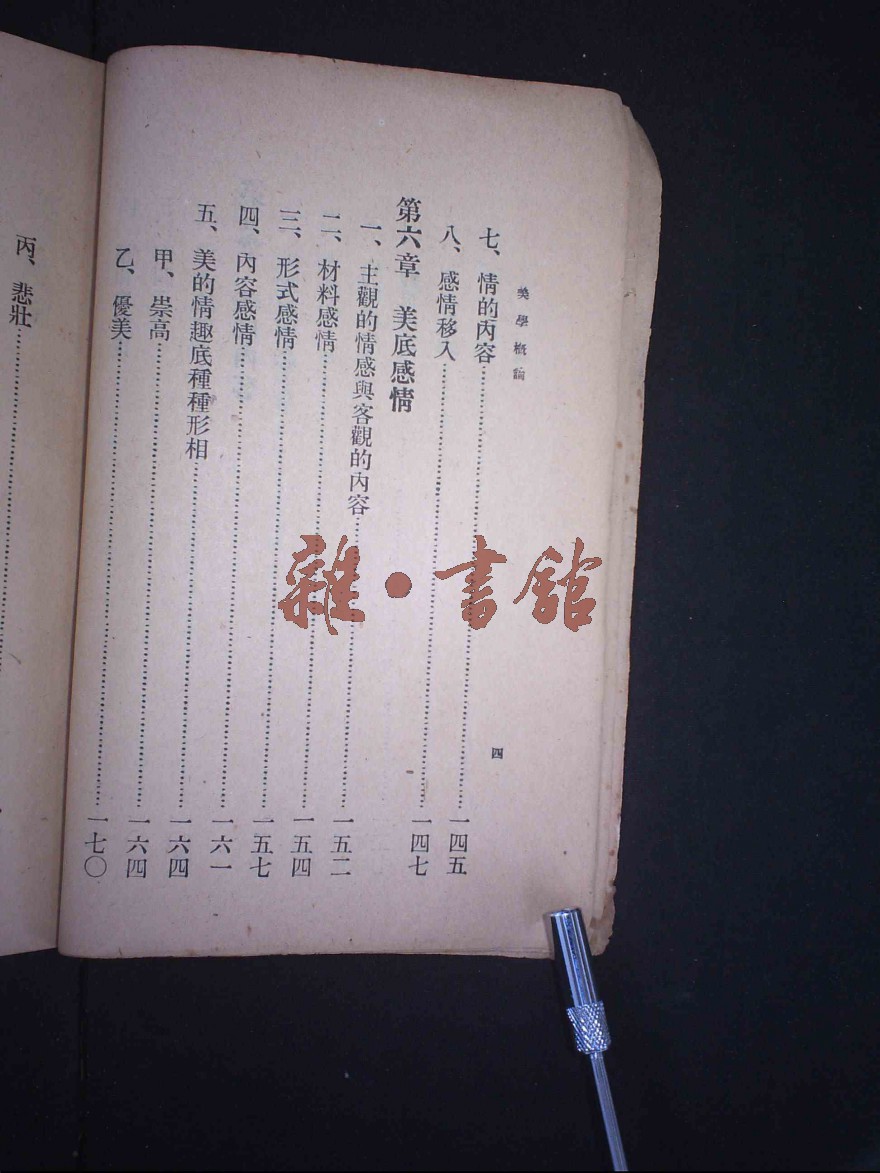 美學概論
四
七、情的內容……一四五
八、感情移入……一四七
第六章 美底感情
一、主觀的情感與客觀的內容……一五二
二、材料感情……一五四
三、形式感情……一五七
四、內容感情……一六一
五、美的情趣底種種形相……一六四
甲、崇高……一六四
乙、優美……一七〇
丙、悲壯……
雜·書館